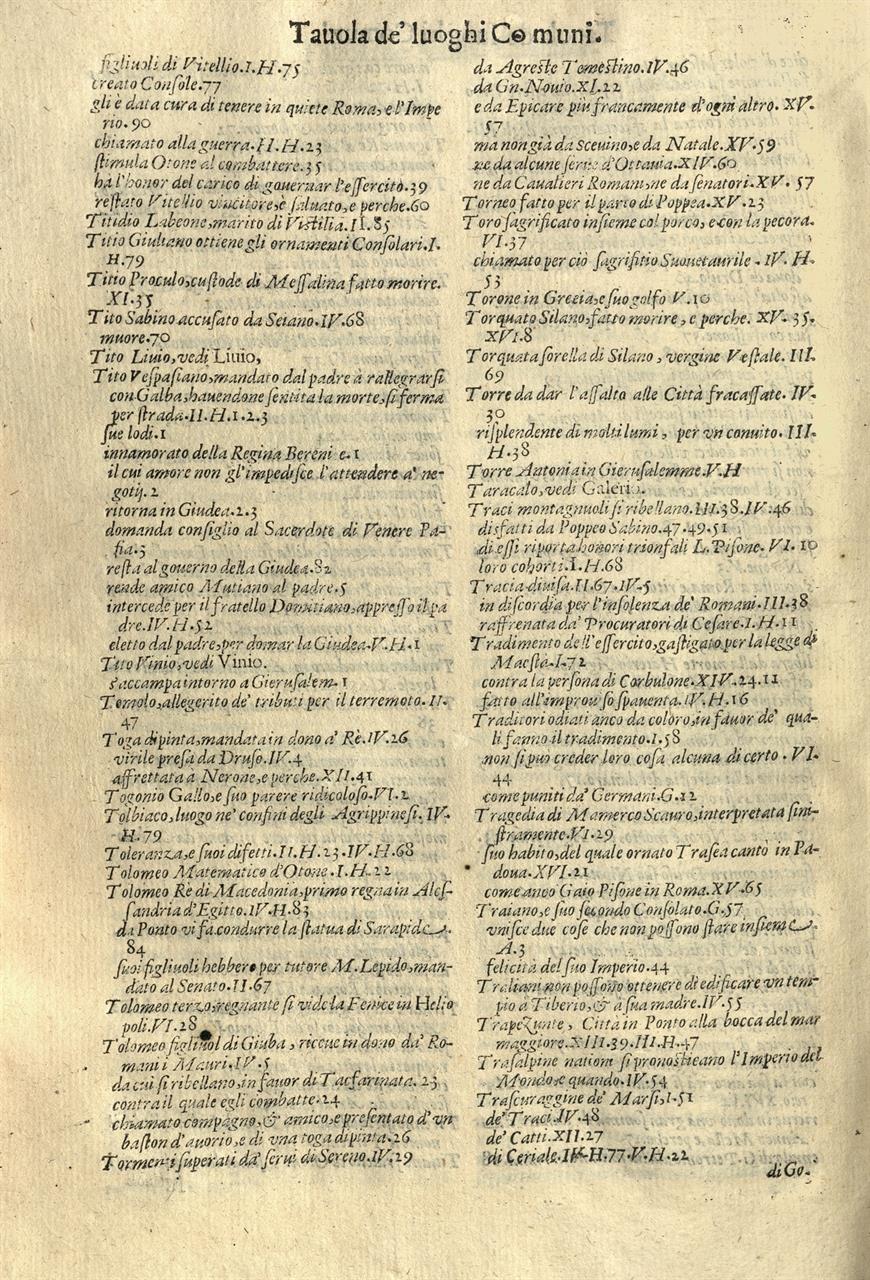 Tauola de' luoghi Co muni.
figliuoli di Vitellio.I.H.75
creato Console.77
gli è data cura di tenere in quiete Roma, e l'Impe
rio. 90
chiamato alla guerra.II.H.23
stimula Otone al combattere.35
ha l'honor del carico di gouernar l'essercito.39
restato Vitellio vincitore, è saluato, e perche.60
Titidio Labeone, marito di Vistilia.II.85
Titio Giuliano ottiene gli ornamenti Consolari.I.
H.79
Titio Proculo, custode di Messalina fatto morire.
XI.35
Tito Sabino accusato da Seiano.IV.68
muore.70
Tito Liuio, vedi Liuio,
Tito Vespasiano, mandato dal padre a rallegrarsi
con Galba, hauendone sentita la morte, si ferma
per strada.II.H.1.2.3
sue lodi.1
innamorato della Regina Bereni e.1
il cui amore non gl'impedisce l'attendere a' ne-
gotij.2
ritorna in Giudea.2.3
domanda consiglio al Sacerdote di Venere Pa-
fia.3
resta al gouerno della Giudea.82
rende amico Mutiano al padre.5
intercede per il fratello Domitiano, appresso il pa
dre.IV.H.52
eletto dal padre, per domar la Giudea.V.H.1
Tito Vinio, vedi Vinio.
s'accampa intorno a Gierusalem.1
Tomolo, allegerito de' tributi per il terremoto. II.
47
Toga dipinta, mandata in dono a' Rè.IV.26
virile presa da Druso.IV.4
affrettata a Nerone, e perche.XII.41
Togonio Gallo, e suo parere ridicoloso.VI.2
Tolbiaco, luogo ne' confini degli Agrippinesi. IV.
H.79
Toleranza, e suoi difetti.II.H.23.IV.H.68
Tolomeo Matematico d'Otone.I.H.22
Tolomeo Rè di Macedonia, primo regna in Ales-
sandria d'Egitto.IV.H.83
da Ponto vi fa condurre la statua di Sarapide.
84
suoi figliuoli hebbero per tutore M. Lepido, man-
dato al Senato.II.67
Tolomeo terzo, regnante si vide la Fenice in Helio
poli.VI.28
Tolomeo figliuol di Giuba, riceue in dono da' Ro-
mani i Mauri.IV.5
da cui si ribellano, in fauor di Tacfarinata. 23
contra il quale egli combatte.24
chiamato compagno, & amico, e presentato d'vn
baston d'auorio, e di vna toga dipinta.26
Tormenti superati da' serui di Sereno.IV.29
da Agreste Temestino.IV.46
da Gn. Nouio.XI.22
e da Epicare piu francamente d'ogni altro. XV.
57
ma non già da Sceuino, e da Natale.XV.59
ne da alcune serue d'Ottauia.XIV.60
ne da Caualieri Romani, ne da senatori.XV. 57
Torneo fatto per il parto di Poppea.XV.23
Toro sagrificato insieme col porco, e con la pecora.
VI.37
chiamato per ciò sagrifitio Suouetaurile. IV. H.
53
Torone in Grezia, e suo golfo V.10
Torquato Silano, fatto morire, e perche. XV. 35.
XVI.8
Torquata sorella di Silano, vergine Vestale. III.
69
Torre da dar l'assalto alle Città fracassate. IV.
30
risplendente di molti lumi, per vn conuito. III.
H.38
Torre Antonia in Gierusalemme.V.H
Taracalo, vedi Galerio.
Traci montagnuoli si ribellano.III.38.IV.46
disfatti da Poppeo Sabino.47.49.51
di essi riporta honori trionfali L. Pisone. VI. 10
loro cohorti.I.H.68
Tracia diuisa.II.67.IV.5
in discordia per l'insolenza de' Romani.III.38
raffrenata da' Procuratori di Cesare.I.H.11
Tradimento dell'essercito, gastigato per la legge di
Maestà.I.72
contra la persona di Corbulone.XIV.24.11
fatto all'improuiso spauenta.IV.H.16
Traditori odiati anco da coloro, in fauor de' qua-
li fanno il tradimento.I.58
non si puo creder loro cosa alcuna di certo. VI.
44
come puniti da' Germani.G.12
Tragedia di Mamerco Scauro, interpretata sini-
stramente.VI.29
suo habito, del quale ornato Trasea cantò in Pa-
doua.XVI.21
come anco Gaio Pisone in Roma.XV.65
Traiano, e suo secondo Consolato.G.37
vnisce due cose che non possono stare insieme.
A.3
felicità del suo Imperio.44
Traliani non possono ottenere di edificare vn tem-
pio a Tiberio, & a sua madre.IV.55
Trapezunte, Città in Ponto alla bocca del mar
maggiore.XIII.39.III.H.47
Trasalpine nationi si pronosticano l'Imperio del
Mondo, e quando.IV.54
Trascuraggine de' Marsi.I.51
de' Traci.IV.48
de' Catti.XII.27
di Ceriale.IV.H.77.V.H.22
di Go-